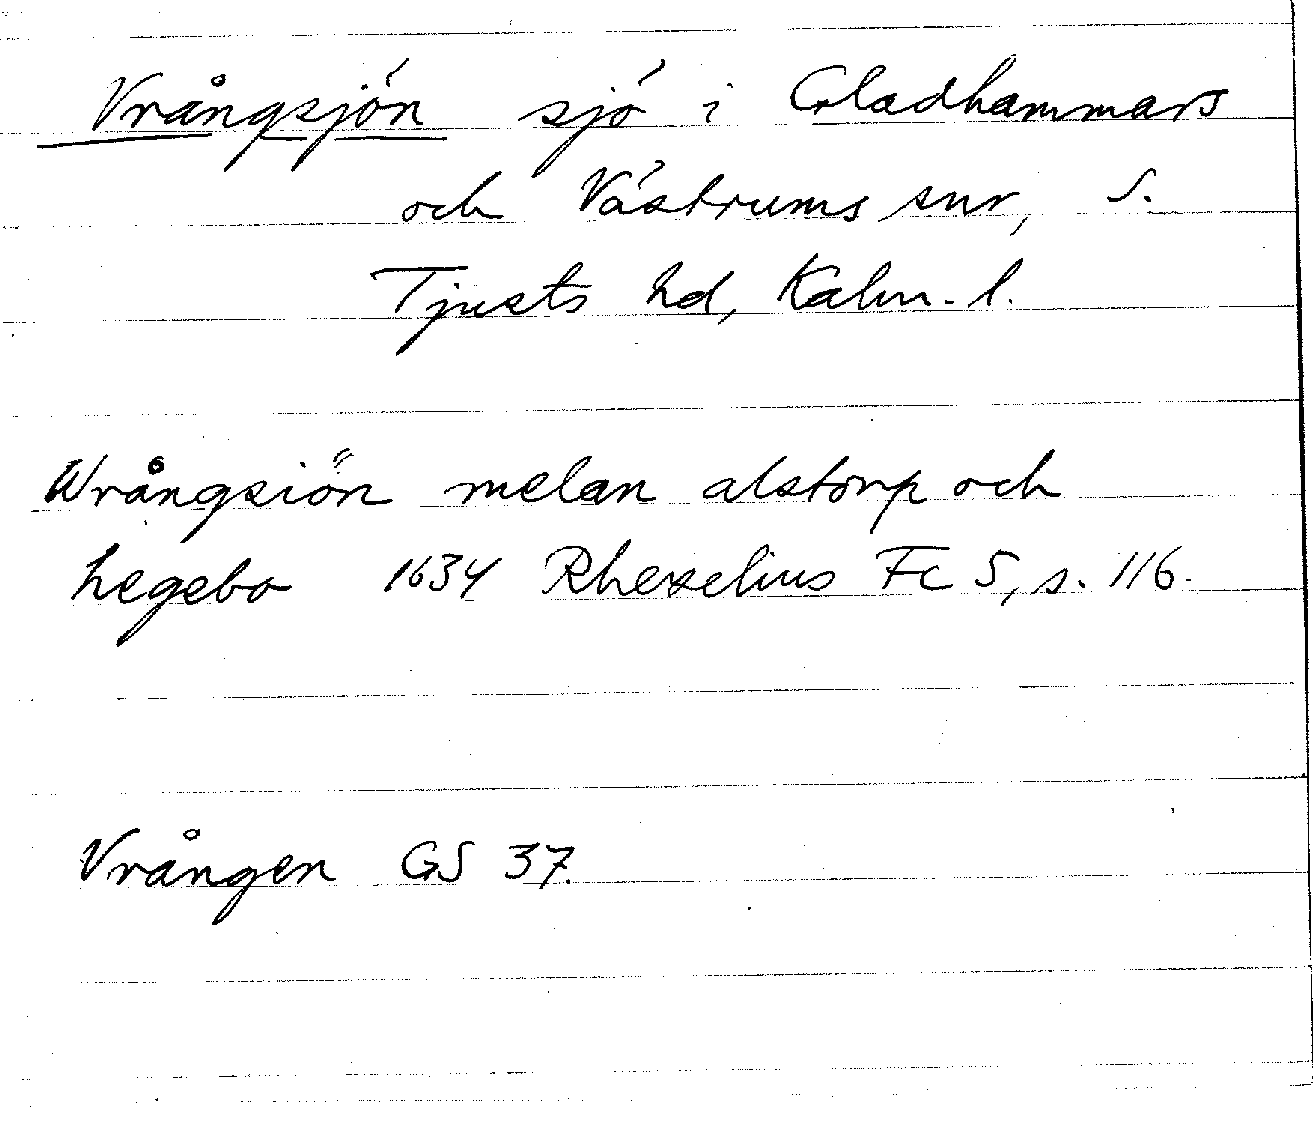 Vrångsjön sjö i Gladhammars
och Västrums snr, S.
Tjusts hd, Kalm. l.
Wrångsiön melan alstorp och
hegebo 1634 Rhezelius Fc 5, s. 116.
Vrången GS 37.